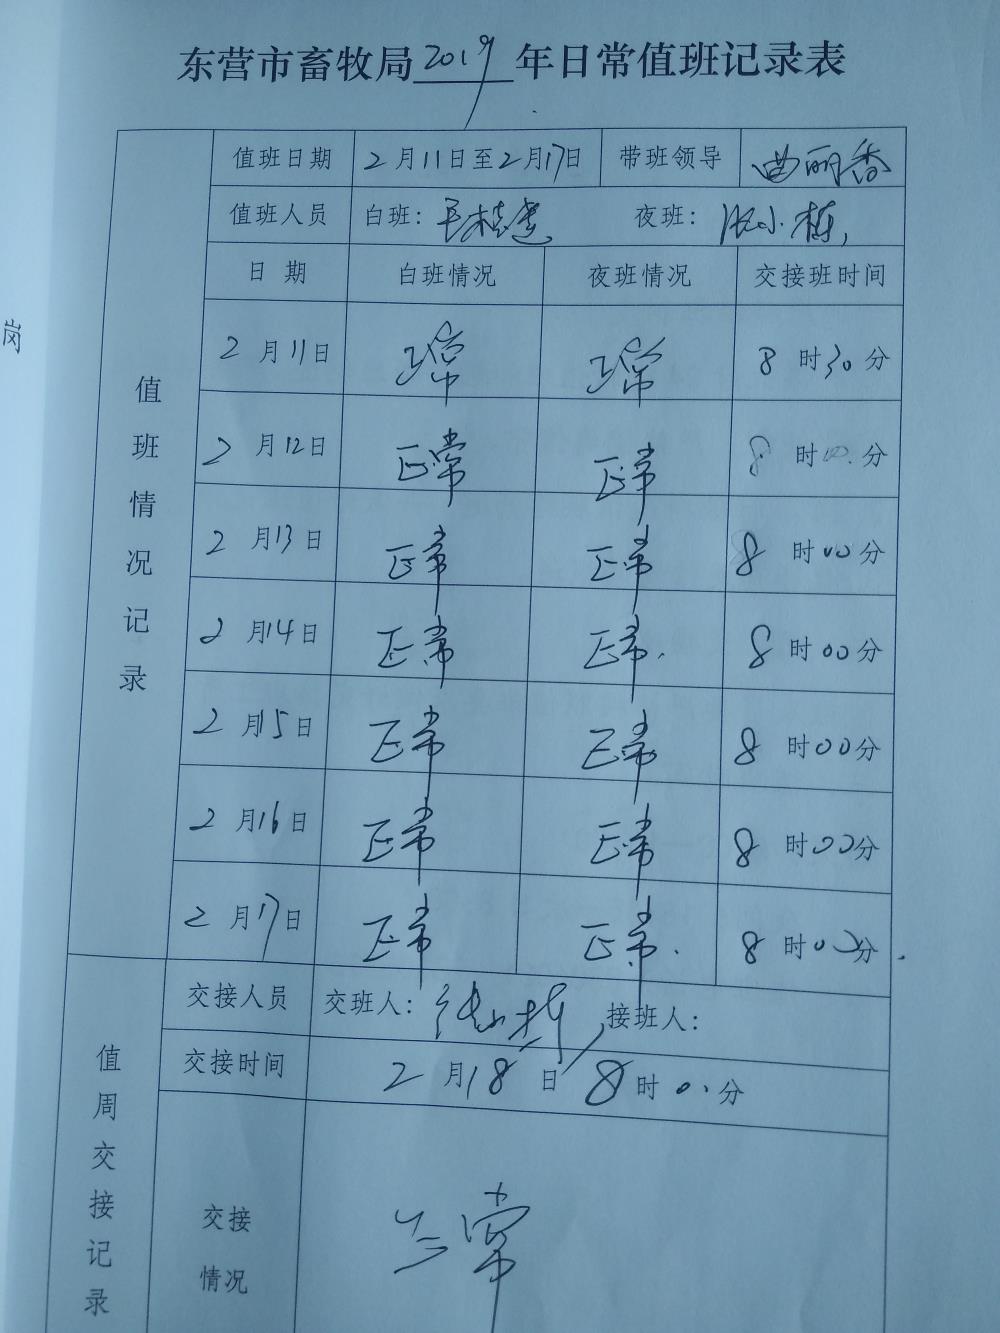 东营市畜牧局2019年日常值班记录表
值班日期 2月11日至2月17日 带班领导 曲丽香
值班人员 白班： 夜班：
日期 白班情况 夜班情况 交接班时间
2月11日 正常 正常 8时30分
2月12日 正常 正常 8时00分
2月13日 正常 正常 8时00分
2月14日 正常 正常 8时00分
2月15日 正常 正常 8时00分
2月16日 正常 正常 8时00分
2月17日 正常 正常 8时00分
值班情况记录
交接人员 交班人： 接班人：
交接时间 2月18日8时00分
值周交接记录
交接情况 正常
岗